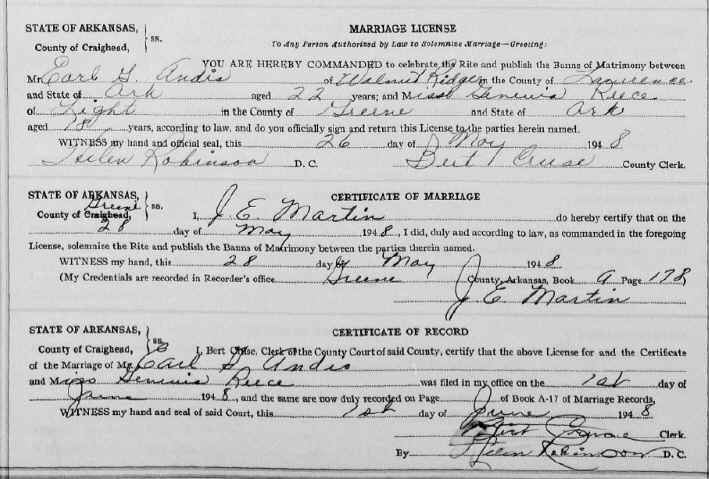 STATE OF ARKANSAS, } ss. MARRIAGE LICENSE
County of Craighead, To Any Person Authorized by Law to Solemnize Marriage—Greeting:
YOU ARE HEREBY COMMANDED to celebrate the Rite and publish the Banns of Matrimony between
Mr. Earl G. Andis of Walnut Ridge in the County of Lawrence
and State of Ark aged 22 years; and Miss Geneva Reece
of Light in the County of Greene and State of Ark
aged 18 years, according to law, and do you officially sign and return this License to the parties herein named.
WITNESS my hand and official seal, this 26 day of May 1948
Helen Robinson D. C. Bert Cruse County Clerk.
STATE OF ARKANSAS, } ss. CERTIFICATE OF MARRIAGE
Greene
County of Craighead, I, J. E. Martin do hereby certify that on the
28 day of May 1948, I did, duly and according to law, as commanded in the foregoing
License, solemnize the Rite and publish the Banns of Matrimony between the parties therein named.
WITNESS my hand, this 28 day of May 1948.
(My Credentials are recorded in Recorder's office Greene County, Arkansas, Book 9 Page 178
J. E. Martin
STATE OF ARKANSAS, } ss. CERTIFICATE OF RECORD
County of Craighead, I, Bert Cruse, Clerk of the County Court of said County, certify that the above License for and the Certificate
of the Marriage of Mr. Earl Andis
and Miss Geneva Reece was filed in my office on the 1st day of
June 1948, and the same are now duly recorded on Page of Book A-17 of Marriage Records,
WITNESS my hand and seal of said Court, this 1st day of June 1948
Bert Cruse Clerk.
By Helen Robinson D. C.